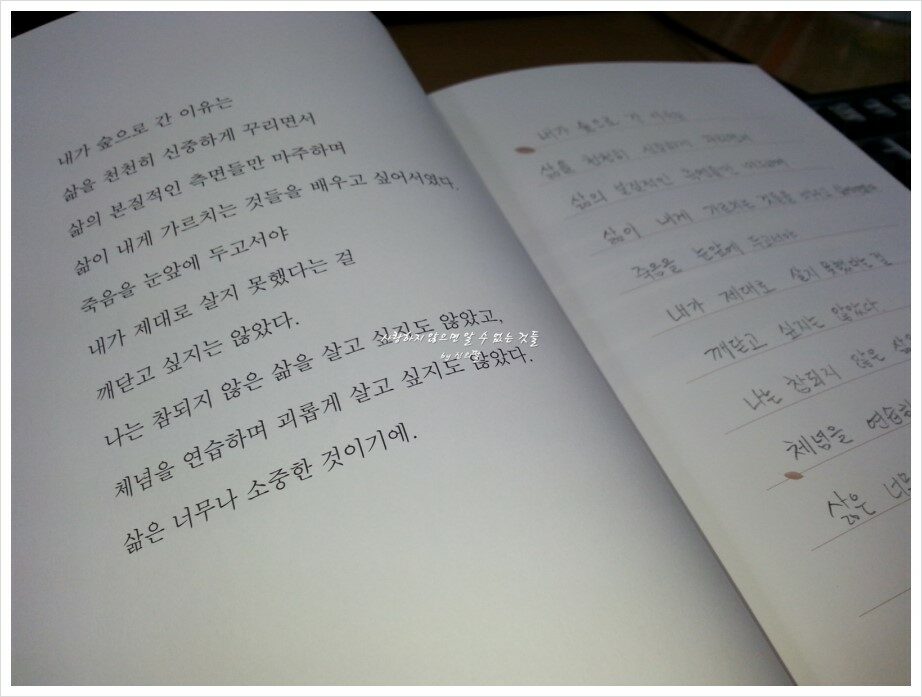 내가 숲으로 간 이유는
삶을 천천히 신중하게 꾸리면서
삶의 본질적인 측면들만 마주하며
삶이 내게 가르치는 것들을 배우고 싶어서였다.
죽음을 눈앞에 두고서야
내가 제대로 살지 못했다는 걸
깨닫고 싶지는 않았다.
나는 참되지 않은 삶을 살고 싶지도 않았고,
체념을 연습하며 괴롭게 살고 싶지도 않았다.
삶은 너무나 소중한 것이기에.
사랑하지 않으면 알 수 없는 것들
by
내가 숲으로 간 이유는
삶을 천천히 신중하게 꾸리면서
삶의 본질적인 측면들만 마주하며
삶이 내게 가르치는 것들을 배우고
죽음을 눈앞에 두고서야
내가 제대로 살지 못했다는 걸
깨닫고 싶지는 않았다
나는 참되지 않은 삶을
체념을 연습하
삶은 너무